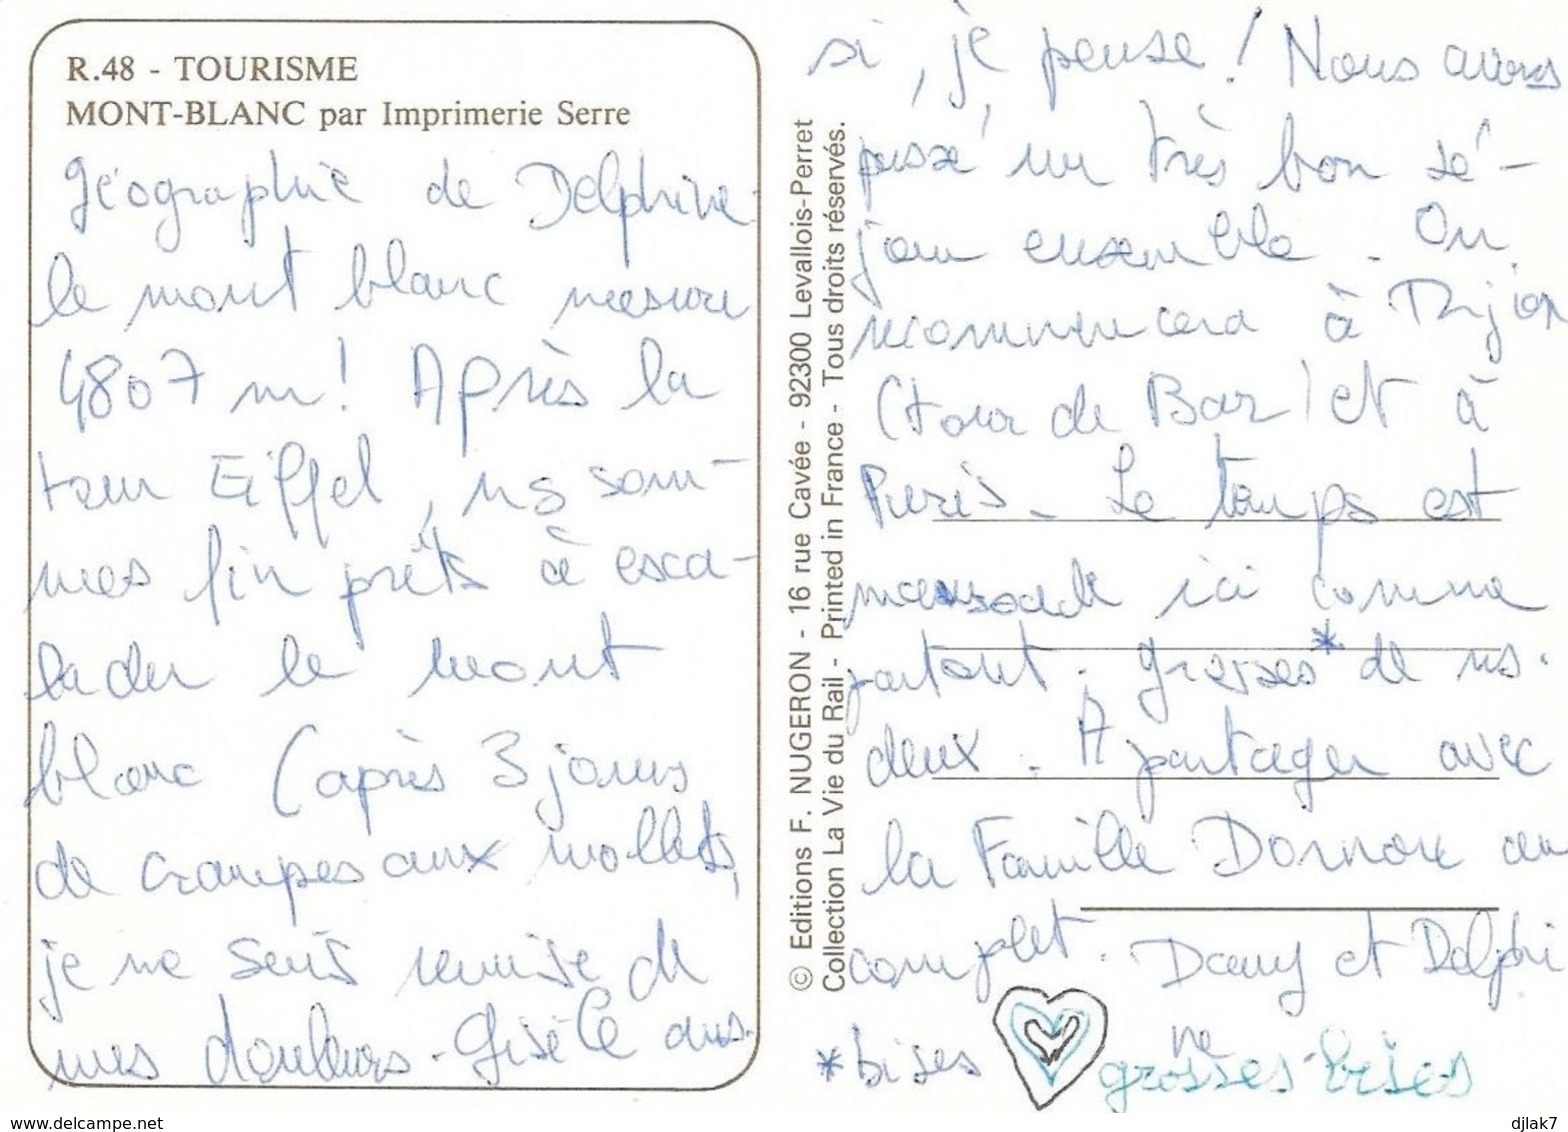 R.48 - TOURISME
MONT-BLANC par Imprimerie Serre
Géographie de Delphine.
le mont blanc mesure
4807 m! Après la
tour Eiffel, ns som-
mes fin prêts à esca-
lader le mont
blanc (après 3 jours
de crampes aux mollets,
je me suis remise de
mes douleurs. Gisèle aus-
© Editions F. NUGERON - 16 rue Cavée - 92300 Levallois-Perret
Collection La Vie du Rail - Printed in France - Tous droits réservés.
si, je pense! Nous avons
passé un très bon sé-
jour ensemble. On
recommencera à
(tour de Bar) et à
Paris. Le temps est
maussade ici comme
partout. Grosses* de ns.
deux. A partager avec
la Famille au
complet. Dany et Delphi
ne
*bises
grosses bises
www.delcampe.net
djlak7